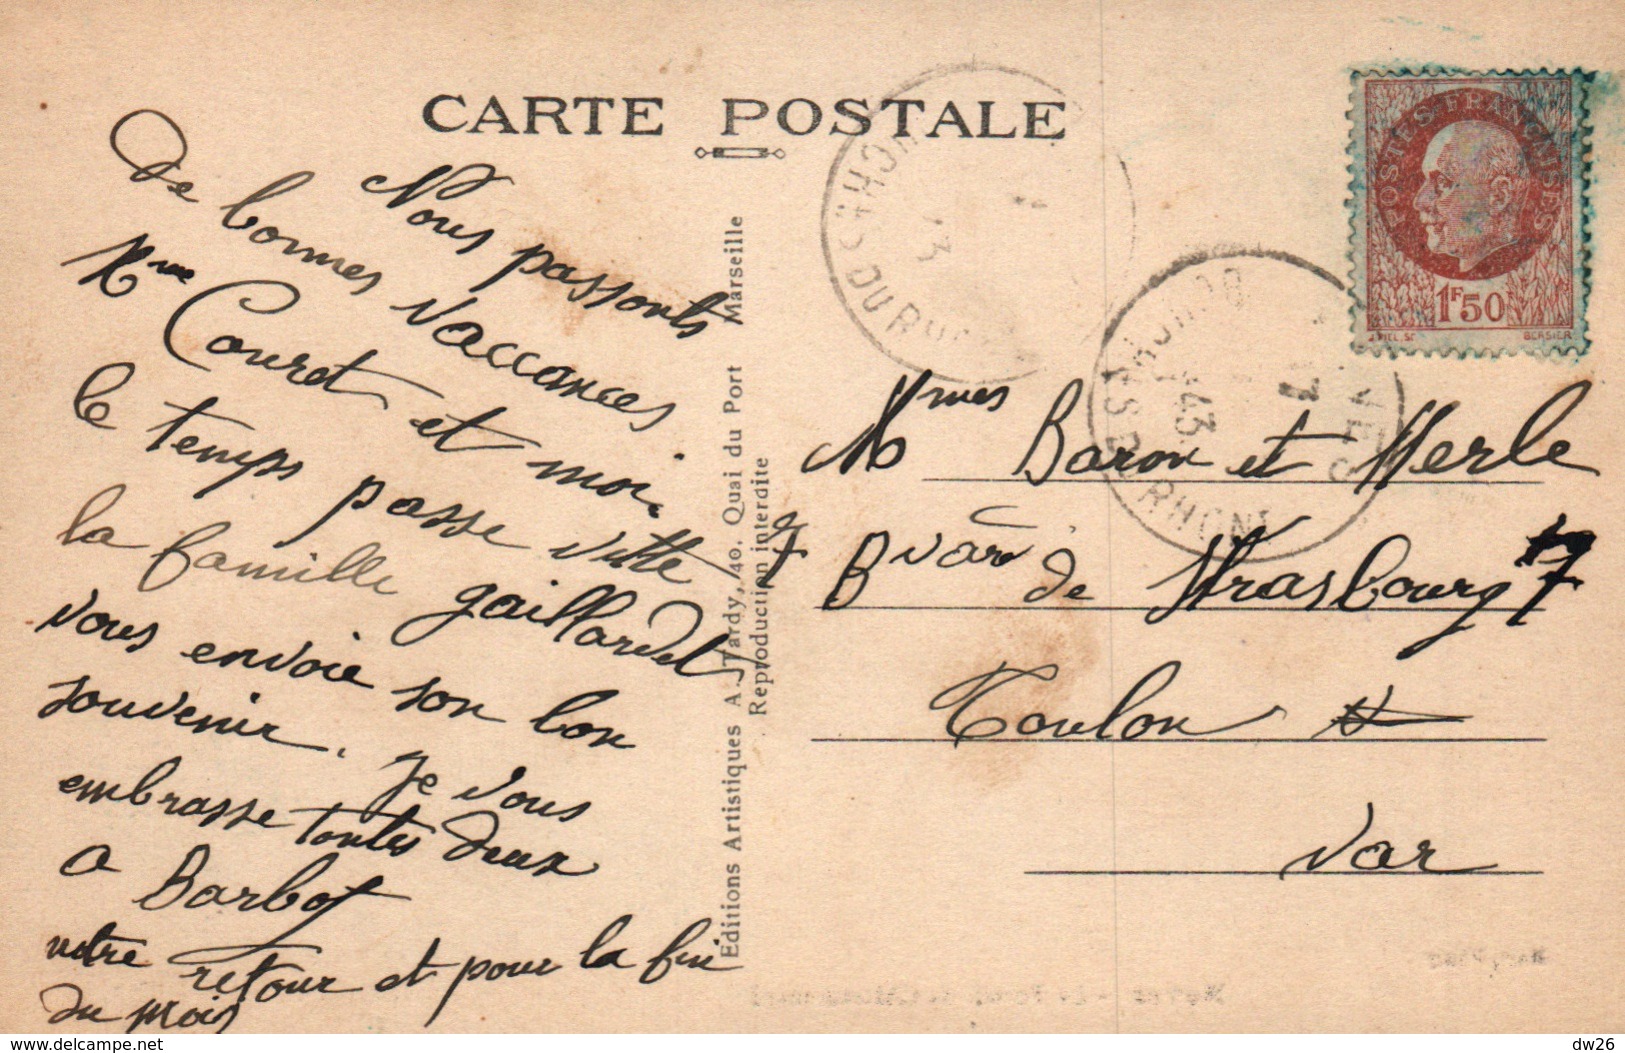 CARTE POSTALE
Nous passonts
De bonnes vaccances
Mme Couret et moi.
le temps passe vitte
la famille gaillardet
vous envoie son bon
souvenir. je vous
embrasse toutes deux
a Barbot
votre retour et pour la fin
du mois
Editions Artistiques A. Tardy, 40, Quai du Port Marseille
Reproduction interdite
POSTES FRANÇAISES
1F50
BERSIER
DU RH
43
Mmes Baron et Merle
7 Bvard de Strasbourg 7
Toulon
Var
delcampe.net
dw26